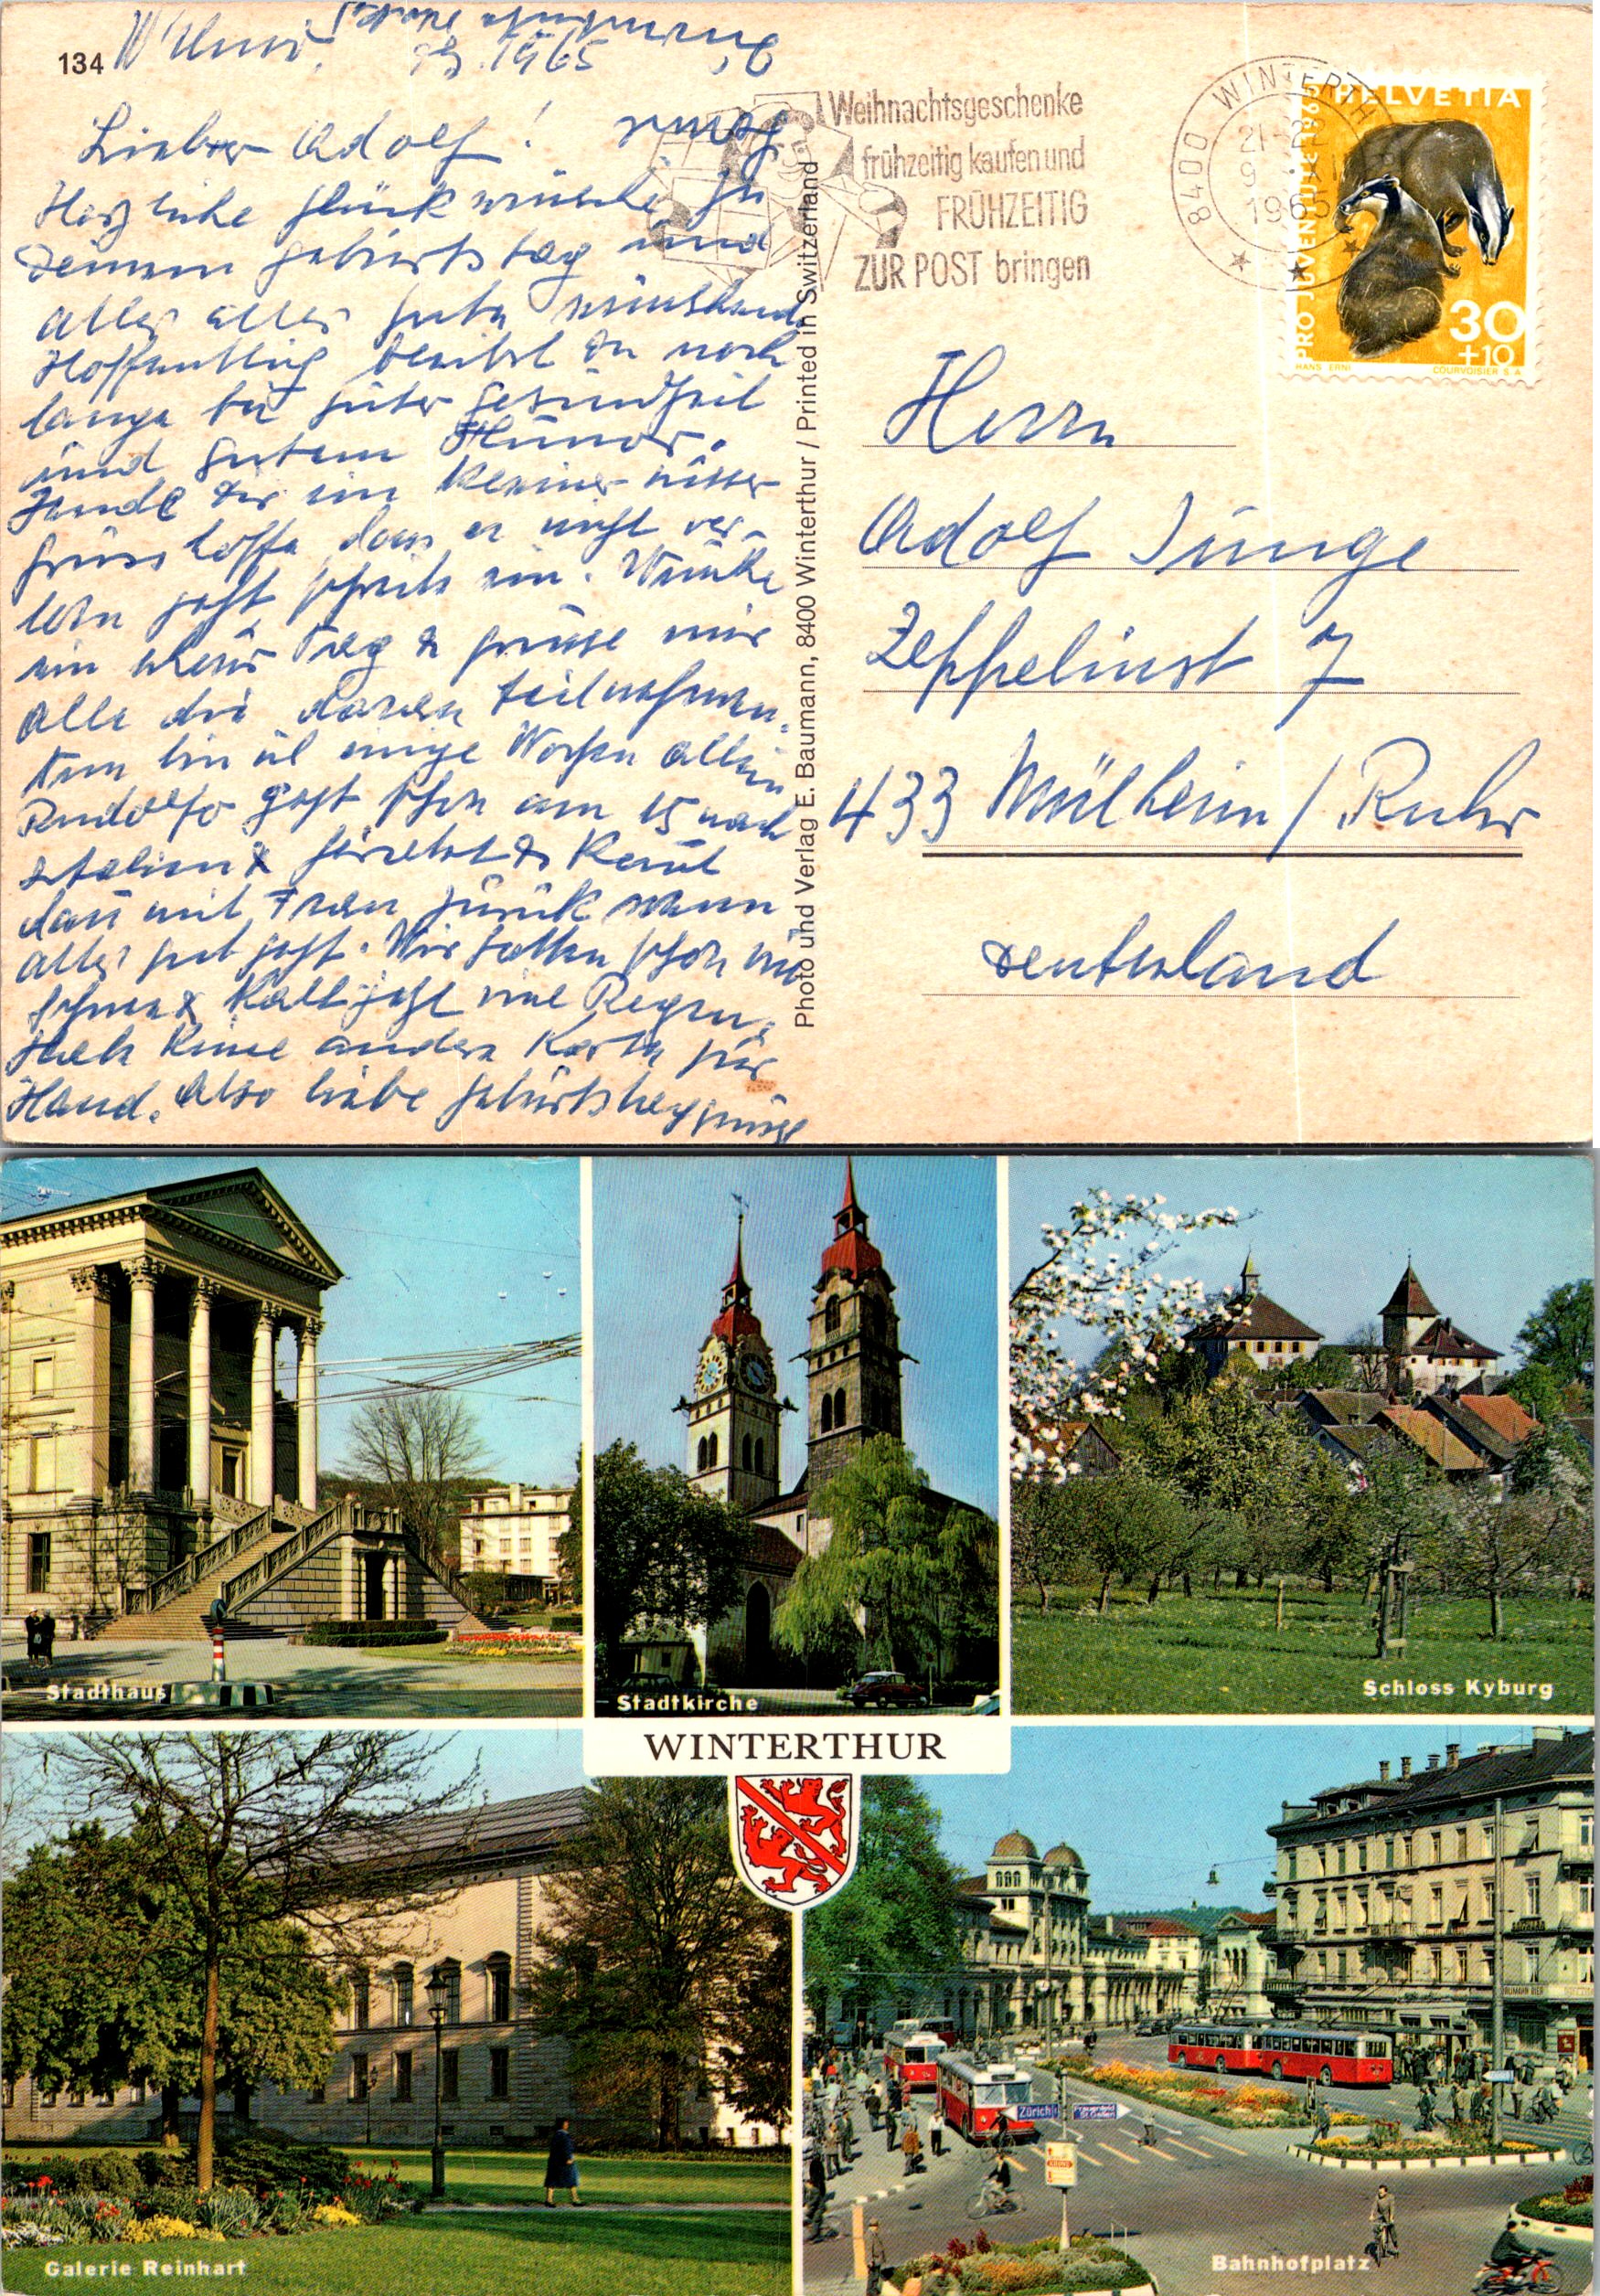 134
Winth. 9.12.1965
Lieber Adolf!
Herzliche Glückwünsche zu
Deinem Geburtstag und
alles alles gute wünschend,
Hoffentlich bleibst Du noch
lange bei guter Gesundheit
und gutem Humor.
Sende Dir ein kleiner
gruss hoffe dass er nicht ver-
loren geht
ein Tag & grüsse mir
alle die daran teilnehmen.
bin einige Wochen allein
Rudolfo geht schon am 15 nach
Italien &
dan mit Frau zurück wenn
alles gut geht. Wir hatten schon
Schnee & Kalt jetzt viel Regen.
Habe keine andere Karte zur
Hand. Also liebe Geburtstagsgrüsse
Weihnachtsgeschenke
frühzeitig kaufen und
FRÜHZEITIG
ZUR POST bringen
8400 WINTERTHUR
1965
HELVETIA
PRO JUVENTUTE 1965
30
+10
HANS ERNI
COURVOISIER S A
Photo und Verlag E. Baumann, 8400 Winterthur / Printed in Switzerland
Herrn
Adolf Junge
Zeppelinst 7
433 Mülheim / Ruhr
Deutschland
Stadthaus
Stadtkirche
Schloss Kyburg
WINTERTHUR
Galerie Reinhart
Zürich
Frauenfeld
St.Gallen
Bahnhofplatz